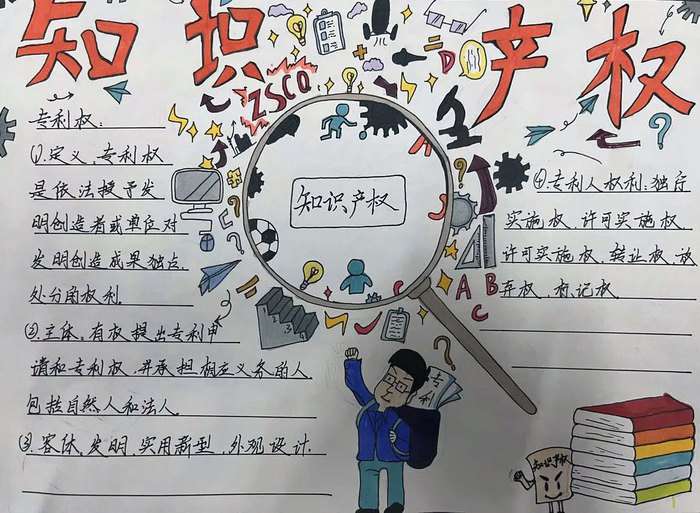 知识产权
ZSCQ
专利权:
①.定义、专利权
是依法授予发
明创造者或单位对
发明创造成果独占.
处分的权利.
②.主体、有权提出专利申
请和专利权,并承担相应义务的人
包括自然人和法人.
③.客体、发明、实用新型、外观设计.
知识产权
④.专利人权利:独占
实施权、许可实施权.
许可实施权、转让权、放
弃权、标记权
A B
C
D
专利
知识产权